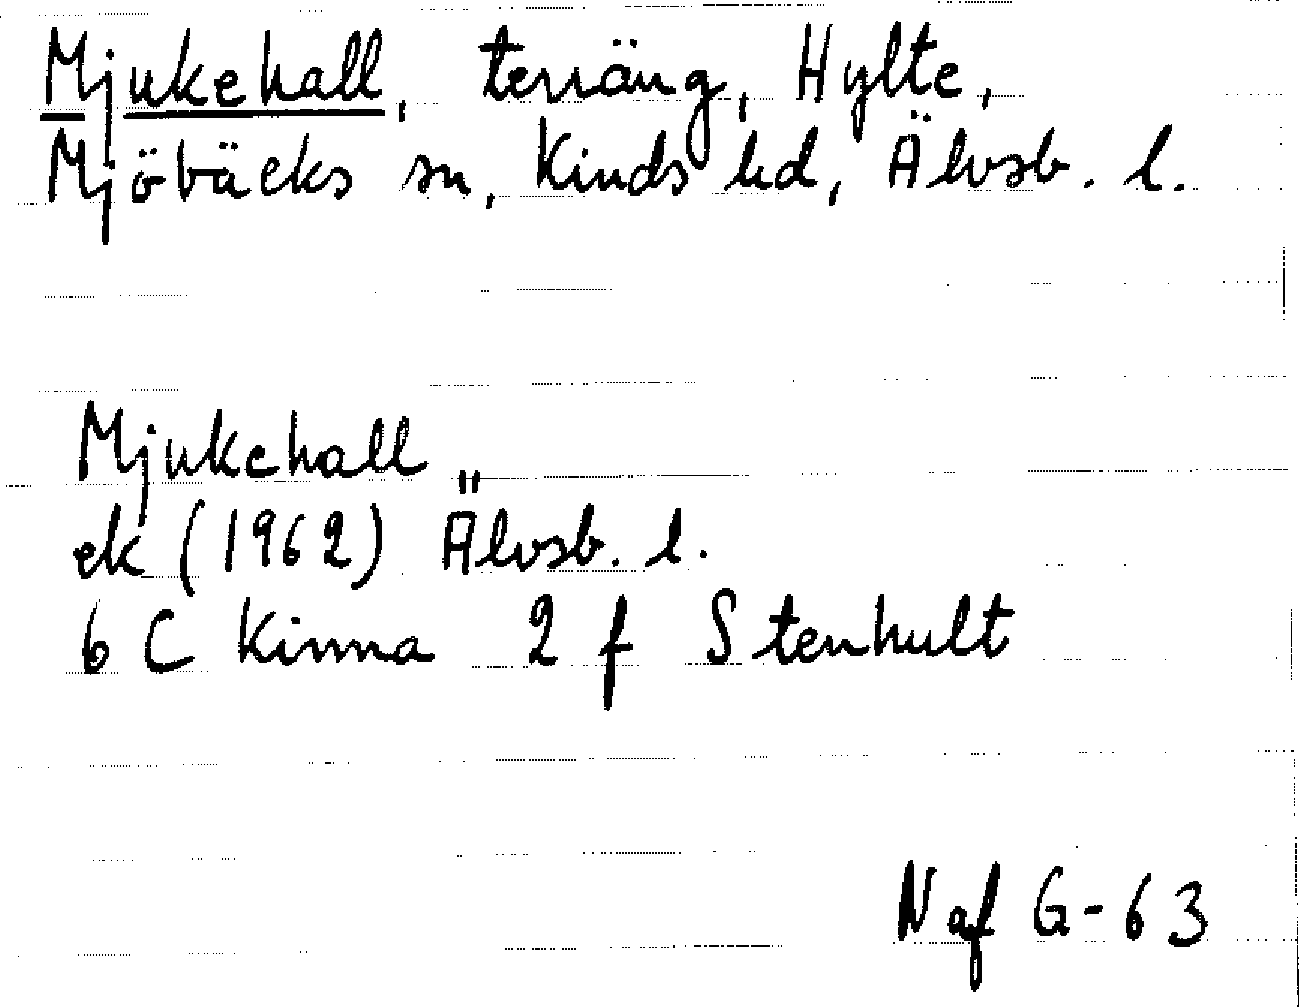 Mjukehall, terräng, Hylte,
Mjöbäcks sn, Kinds hd, Älvsb. l.
Mjukehall
ek (1962) Älvsb. l.
6 C Kinna 2 f Stenhult
Naf G-63